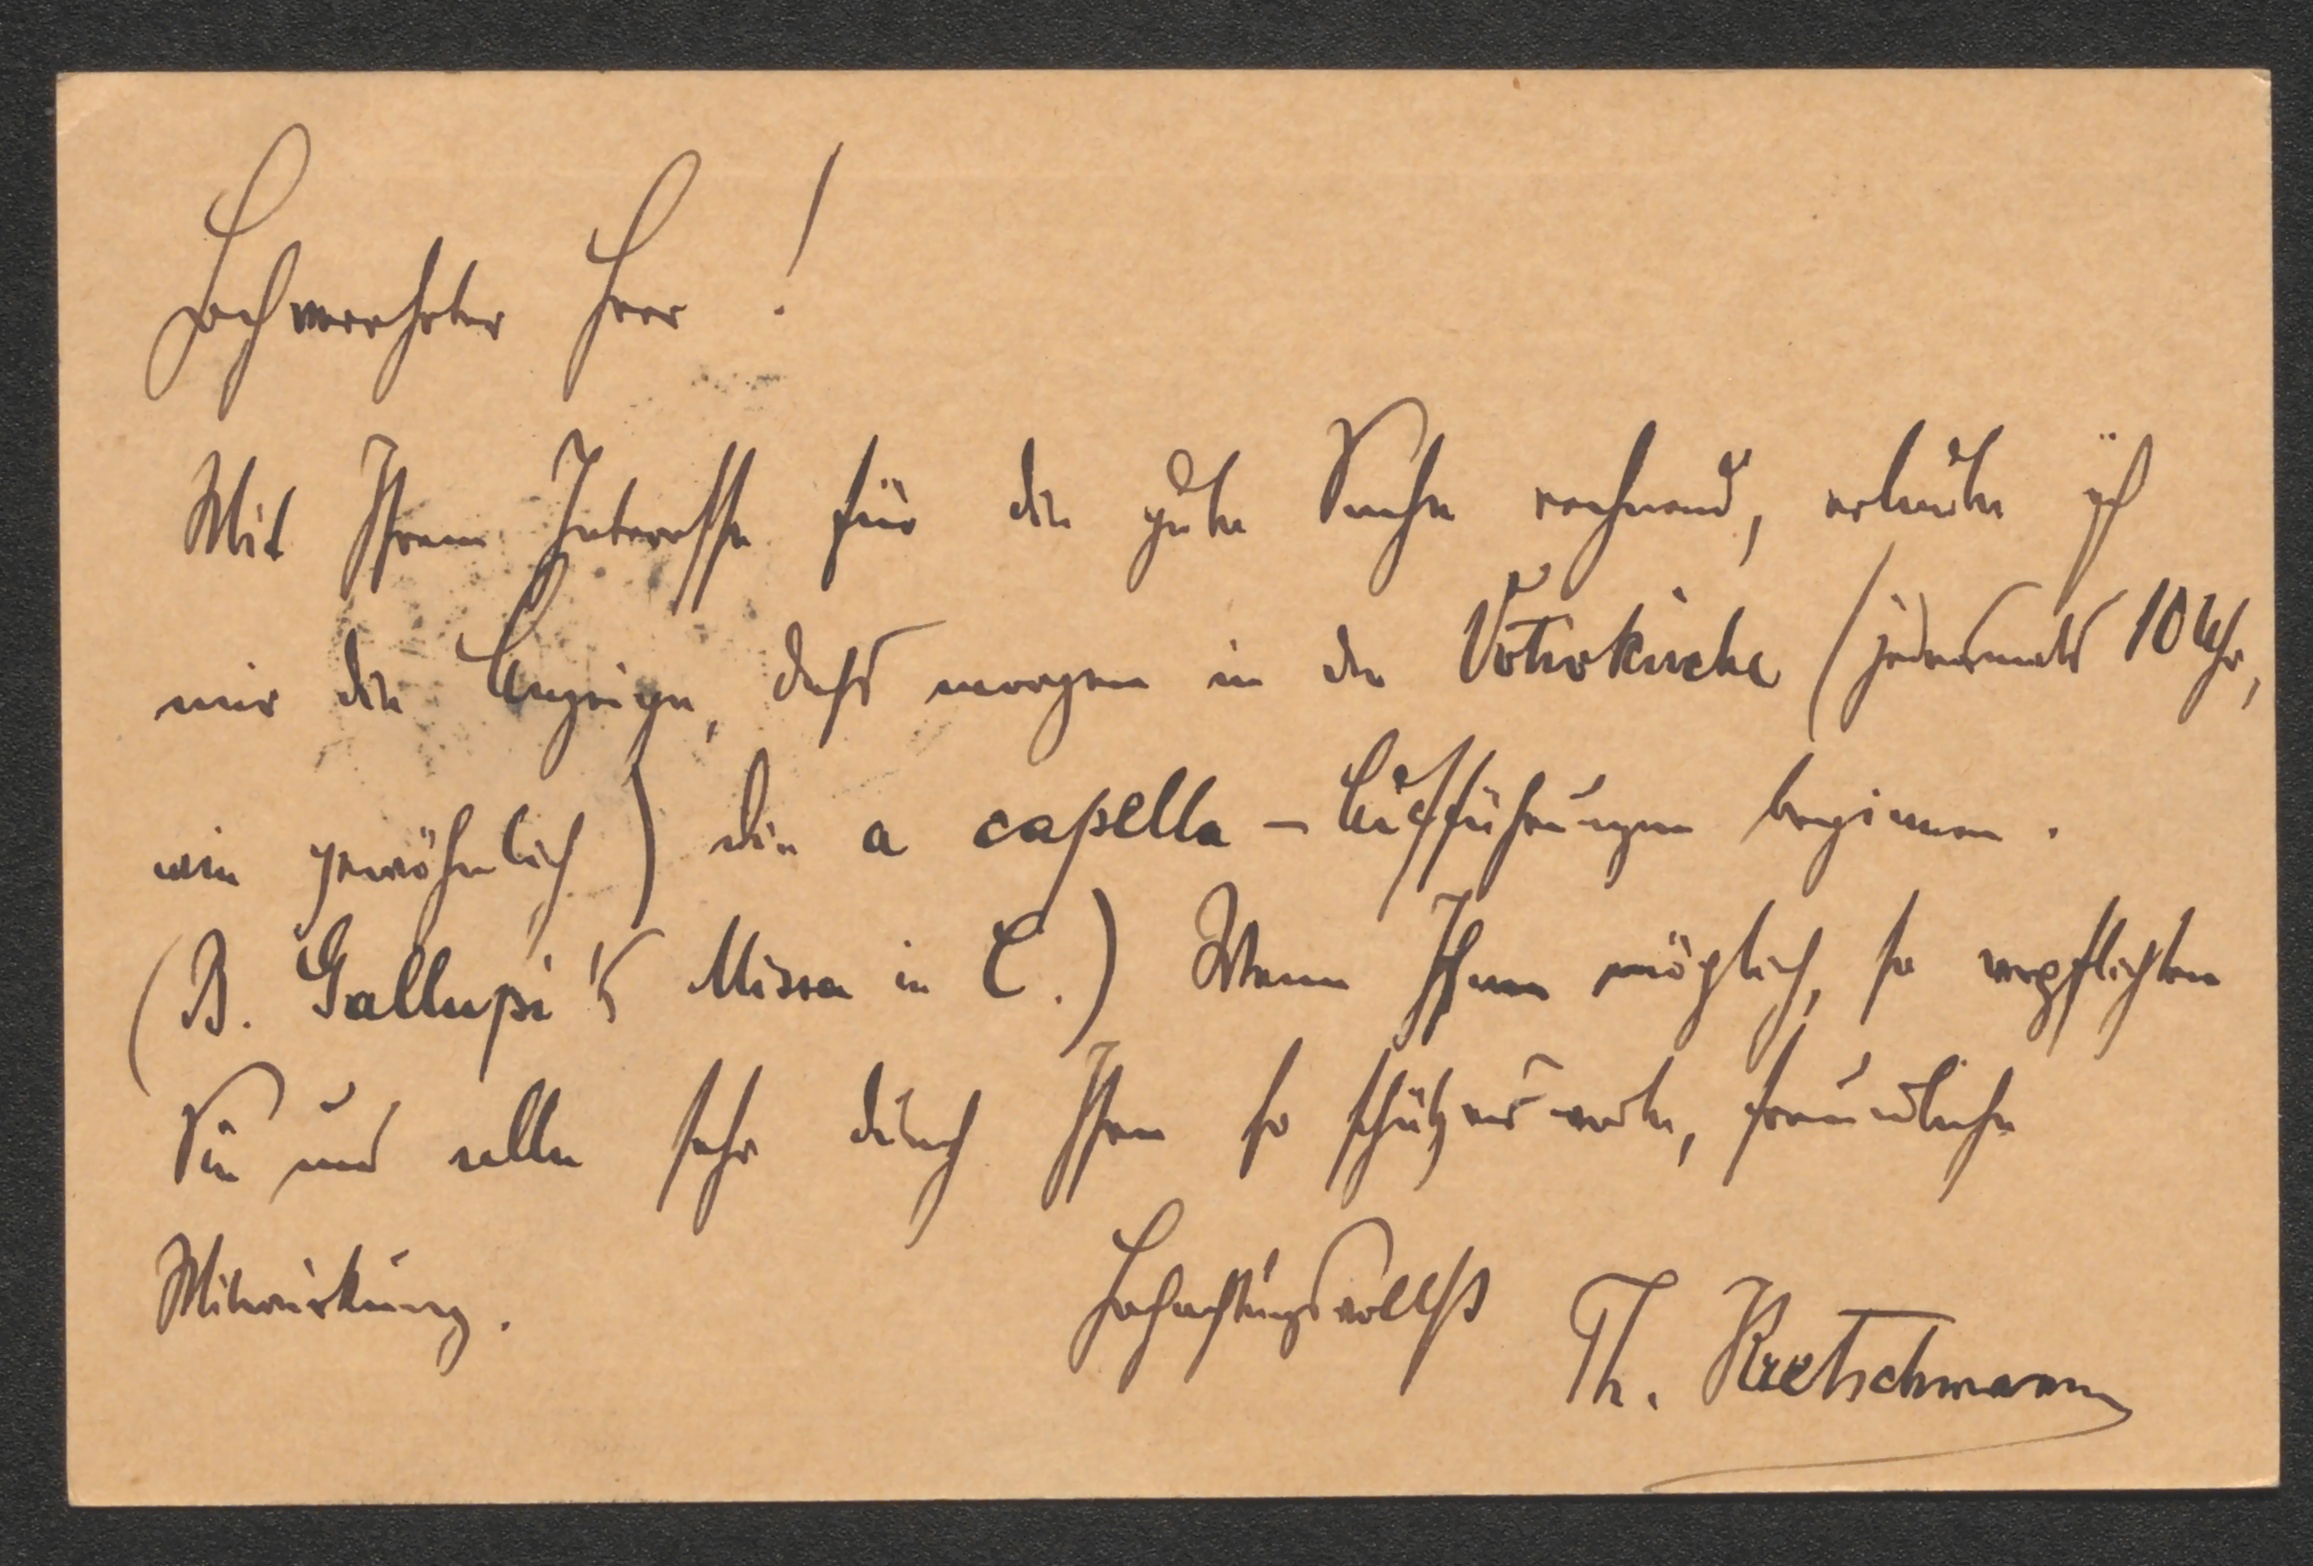 Hochverehrter Herr!
Mit Ihrem Interesse für die gute Sache rechnend, erlaube ich
mir die Anzeige, daß morgen in der Votivkirche (jedesmals 10 Uhr,
wie gewöhnlich) die a capella - Aufführungen beginnen.
(B. Gallupi's Missa in C.) Wenn Ihnen möglich, so verpflichten
Sie uns alle sehr durch Ihre so schätzenswerte, freundliche
Mitwirkung.
Hochachtungsvollst
Th. Kretschmann